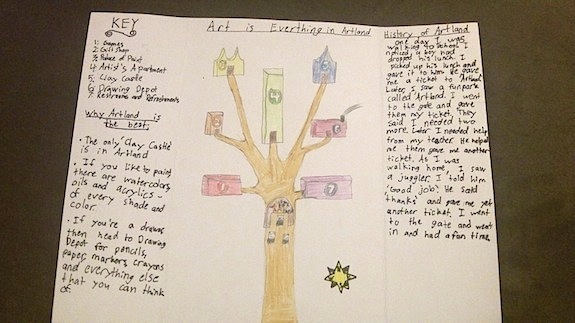 KEY
1: Games
2: Gift Shop
3: Palace of Paint
4: Artist's Apartment
5: Clay Castle
6: Drawing Depot
7: Restrooms and Refreshments
Why Artland is
the best:
• The only Clay Castle
is in Artland
• If you like to paint,
there are watercolors,
oils and acrylics -
of every shade and
color.
• If you're a drawer
then head to Drawing
Depot for pencils,
paper, markers, crayons
and everything else
that you can think
of.
Art is Everthing in Artland
7
History of Artland
one day I was
walking to school I
noticed a boy had
dropped his lunch. I
picked up his lunch and
gave it to him. He gave
me a ticket to Artland.
Later, I saw a funpark
called Artland. I went
to the gate and gave
them my ticket. They
said I needed two
more. Later I needed help
from my teacher. He helped
me then gave me another
ticket. As I was
walking home, I saw
a juggler. I told him
'Good job'. He said
thanks' and gave me yet
another ticket. I went
to the gate and went
in and had a fun time.